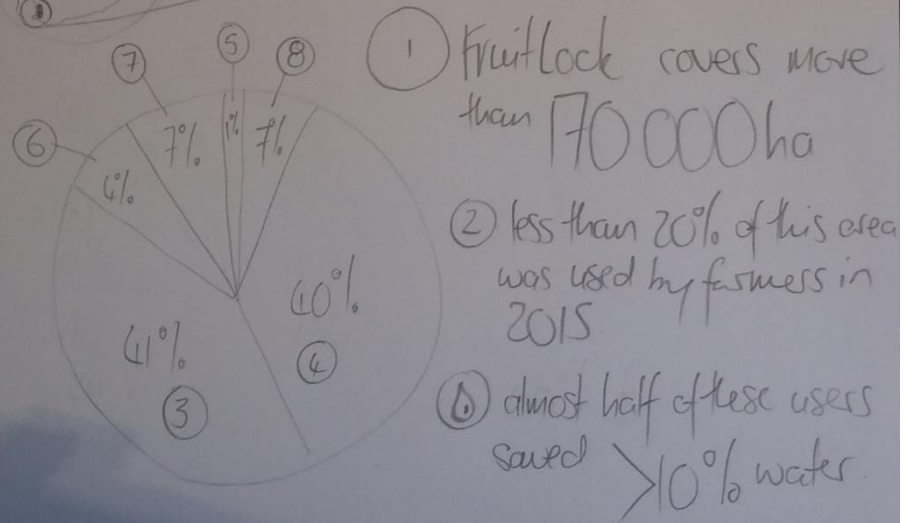 7 5 8
6 7% 1% 7%
4%
40%
41% 4
3
1 FruitLook covers more
than 170 000 ha
2 less than 20% of this area
was used by farmers in
2015
almost half of these users
saved >10% water.